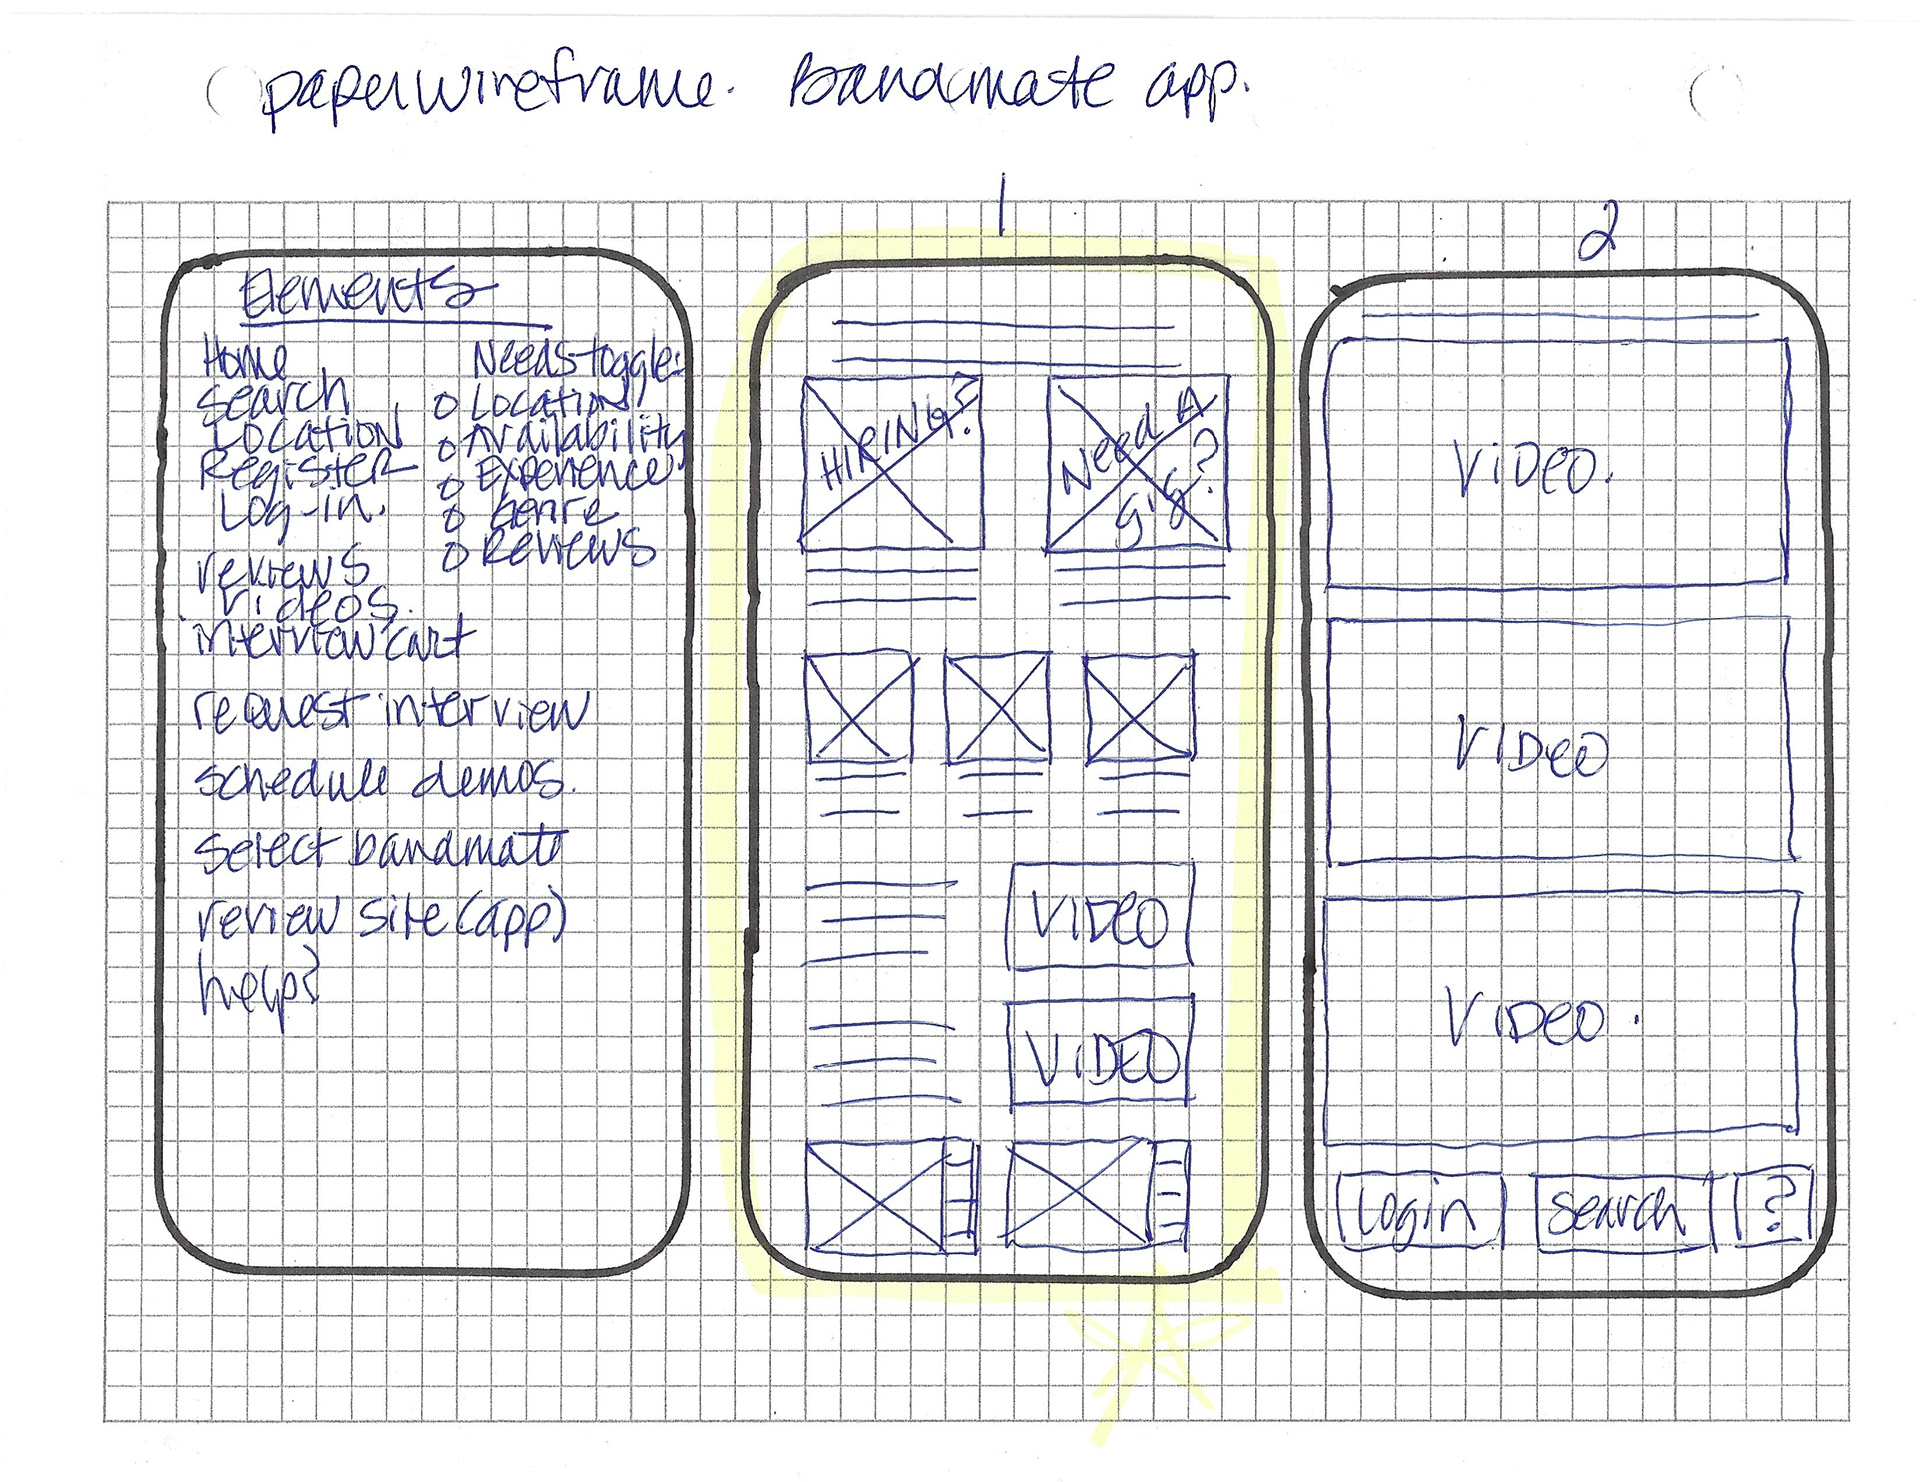 paperwireframe. Bandmate app.
Elements
Home
Search
Location
Register
Log-in.
reviews
videos.
interview cart
request interview
schedule demos.
select bandmate
review site (app)
help?
Needs toggle:
O Location
O Availability
O Experience
O Genre
O Reviews
1
HIRING?
Need A
Gig?
VIDEO
VIDEO
2
VIDEO.
VIDEO
VIDEO.
Login
Search
?